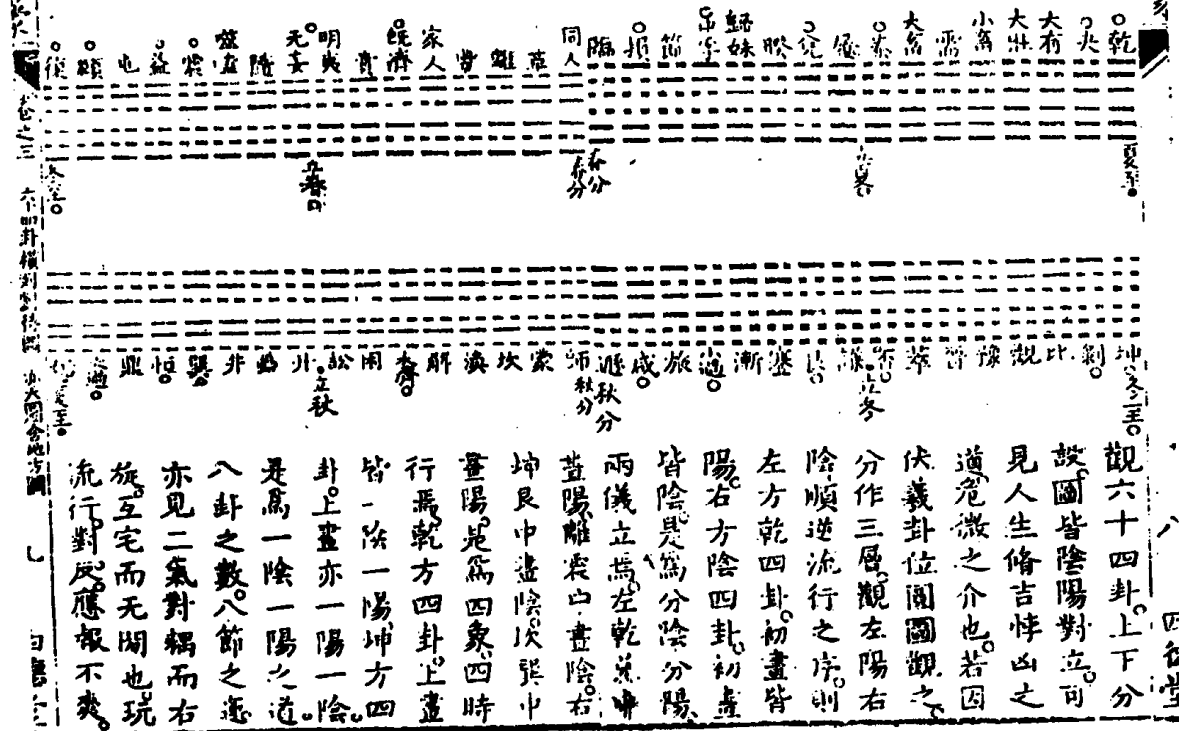 乾 夬 大有 大壯 小畜 需 大畜 泰 履 兌 睽 歸妹 中孚 節 損 臨 同人 革 離 豐 家人 既濟 賁 明夷 无妄 隨 噬嗑 震 益 屯 頤 復
夏至 立夏 春分 春分 立春 冬至
坤 剝 比 觀 豫 晉 萃 否 謙 艮 蹇 漸 小過 旅 咸 遯 師 蒙 坎 渙 解 未濟 困 訟 升 蠱 井 巽 恒 鼎 大過 姤
冬至 立冬 秋分 秋分 立秋 夏至
觀六十四卦上下分
設圖皆陰陽對立可
見人生脩吉悖凶之
道危微之介也若因
伏羲卦位圓圖觀之
分作三層觀左陽右
陰順逆流行之序則
左方乾四卦初畫皆
陽右方陰四卦初畫
皆陰是爲分陰分陽
兩儀立焉左乾兌中
畫陽離震中畫陰右
坤艮中畫陰坎巽中
畫陽是爲四象四時
行焉乾方四卦上畫
皆一陰一陽坤方四
卦上畫亦一陽一陰
是爲一陰一陽之道
八卦之數八節之運
亦見二氣對耦而右
旋互宅而无間也玩
流行對反應報不爽
卷之三